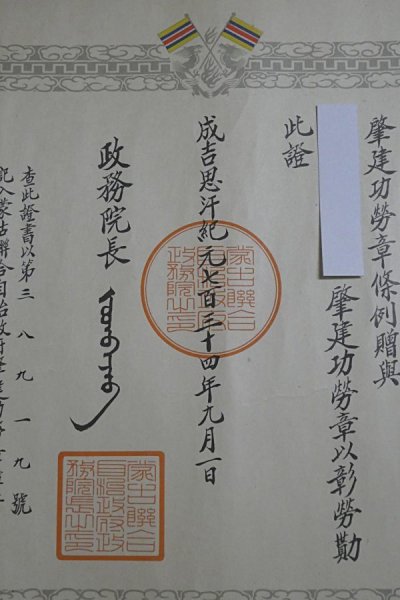 肇建功勞章條例贈與
肇建功勞章以彰勞勩
此證
成吉思汗紀元七百三十四年九月一日
蒙古聯合
自治政府
政務院之印
政務院長
蒙古聯合
自治政府政
務院長之印
查此證書以第三八九一九號
記入蒙古聯合自治政府肇建功勞